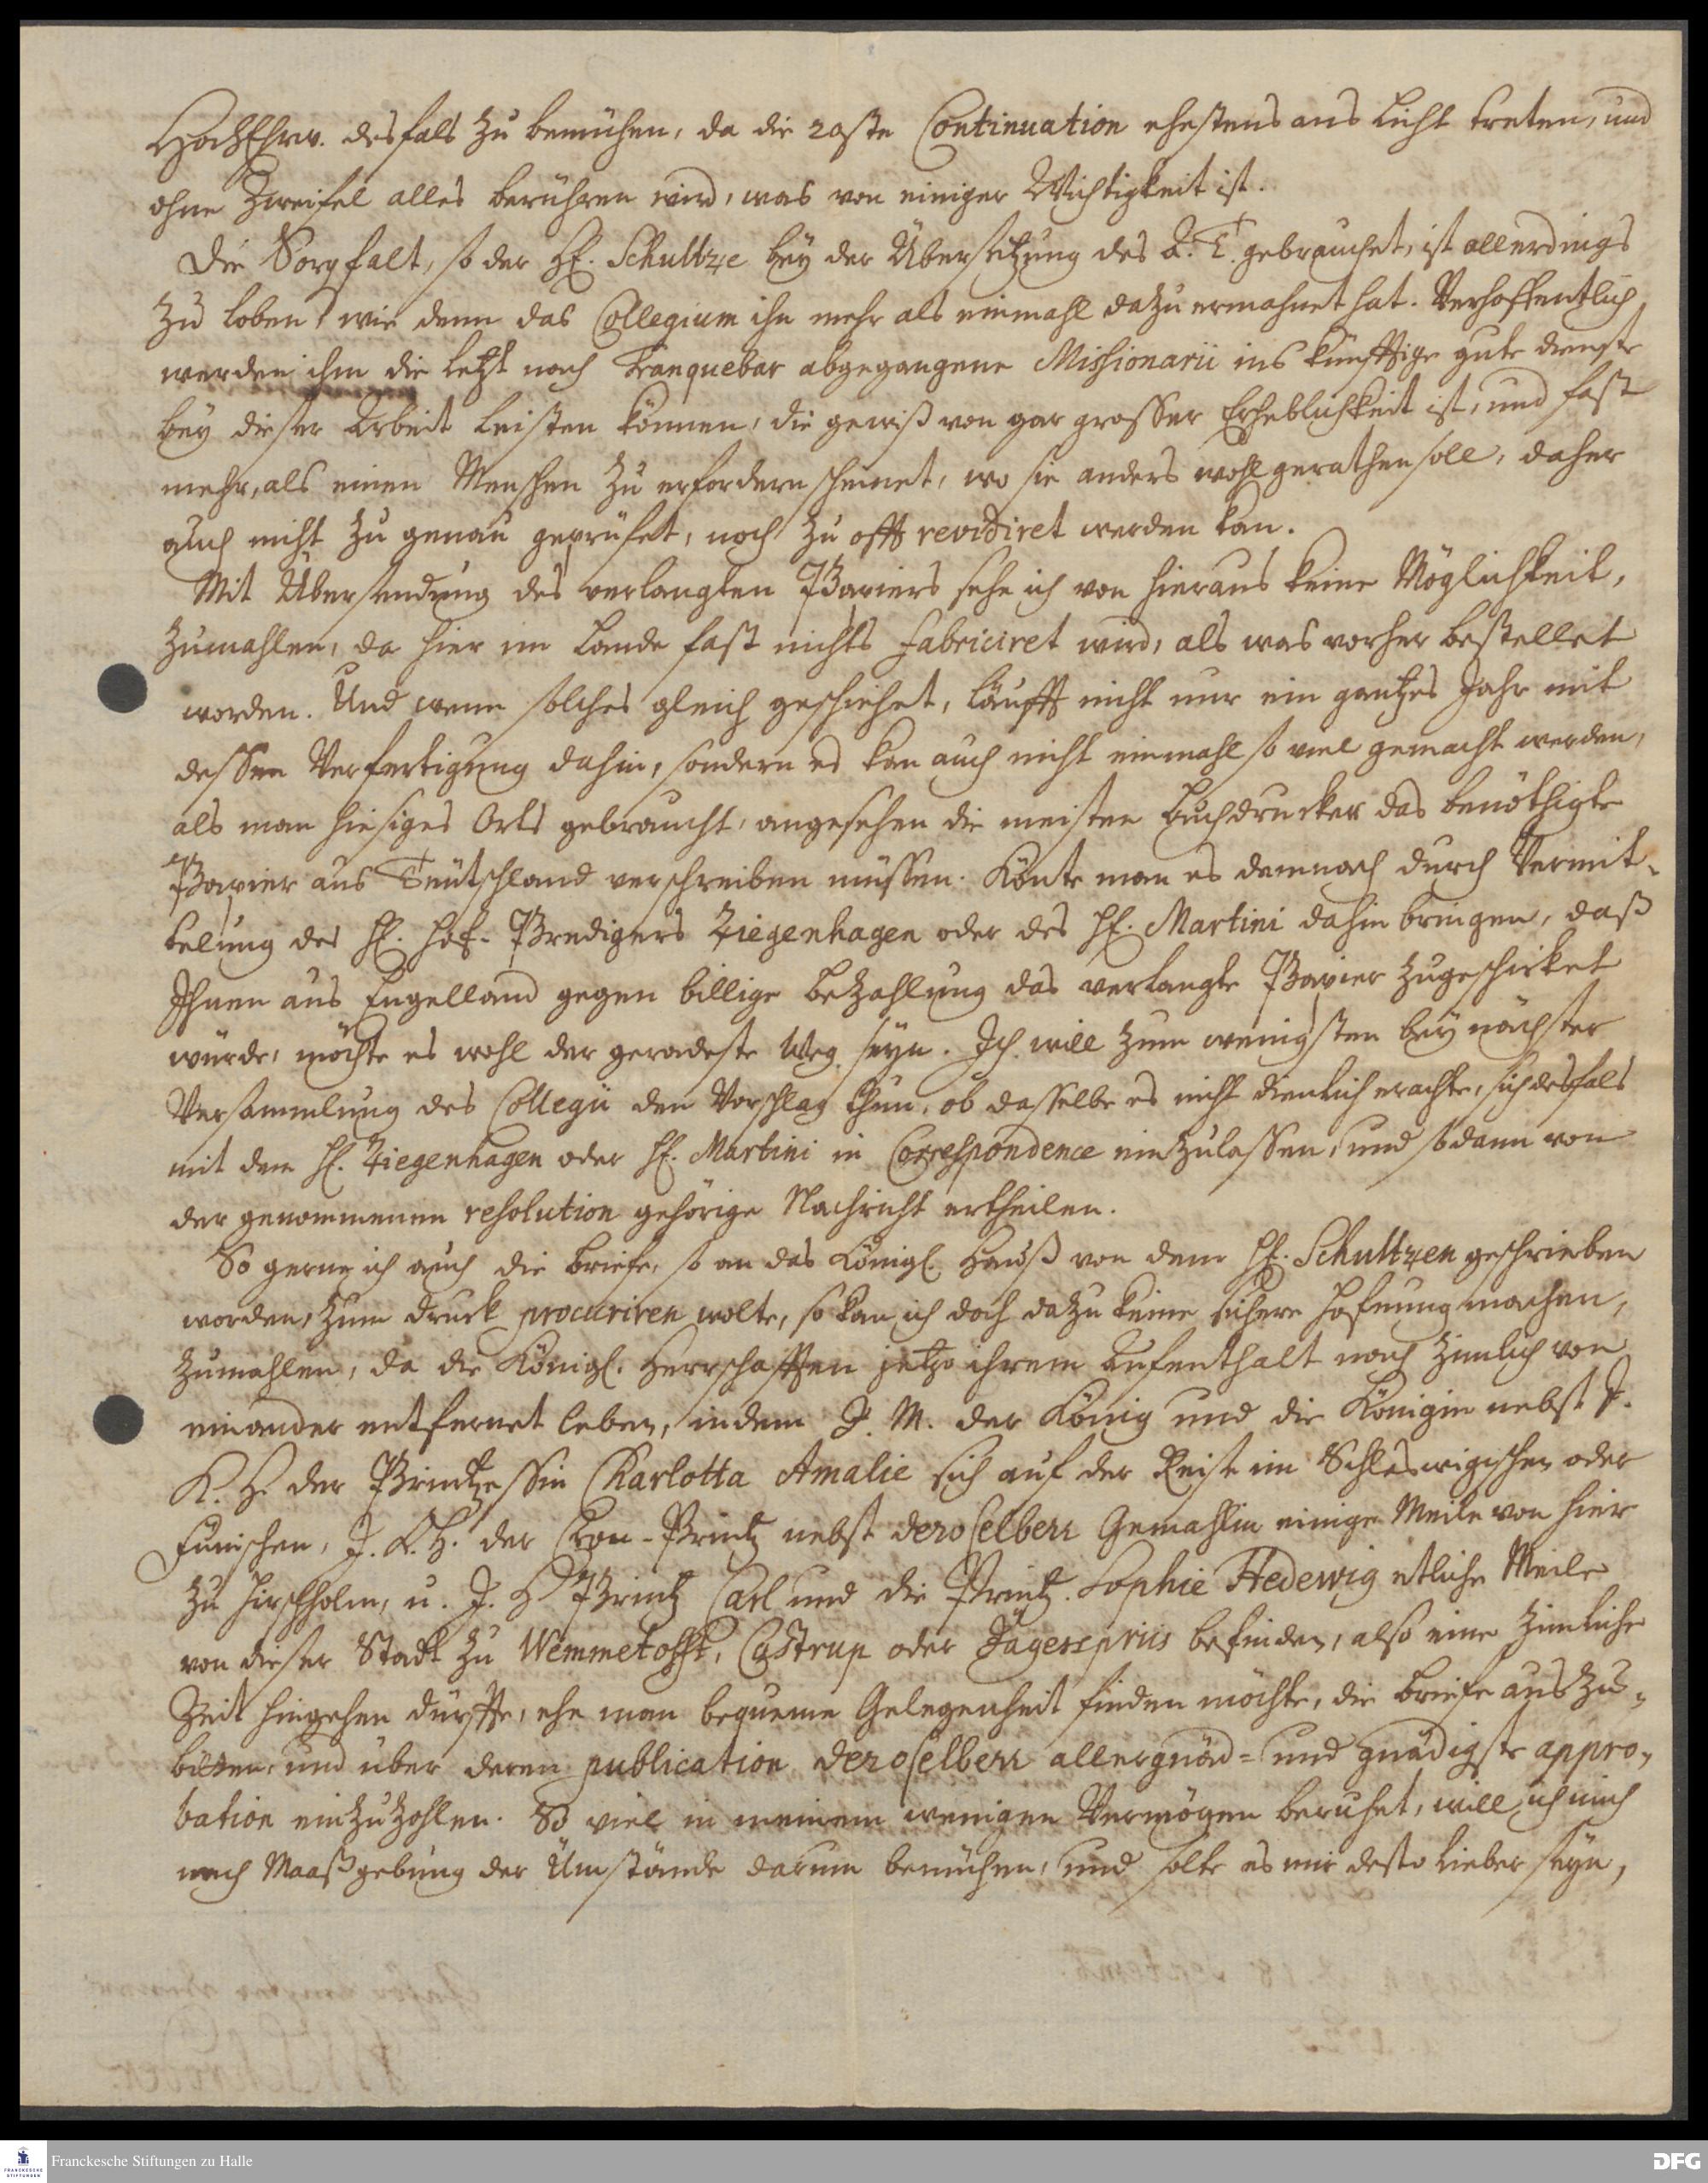 HochEhrw. desfals zu bemühen, da die 20ste Continuation ehestens ans Licht treten, und
ohne Zweifel alles berühren wird, was von einiger Wichtigkeit ist.
Die Sorgfalt, so der H. Schultze bey der Übersetzung des A. T. gebrauchet, ist allerdings
zu loben, wie denn das Collegium ihn mehr als einmahl dazu ermahnet hat. Verhoffentlich
werden ihm die letzt nach Tranquebar abgegangene Missionarii ins künfftige gute dienste
bey dieser Arbeit leisten können, die gewiß von gar grosser Erheblichkeit ist, und fast
mehr, als einen Menschen zu erfordern scheinet, wo sie anders wohl gerathen soll, daher
auch nicht zu genau geprüfet, noch zu offt revidiret werden kan.
Mit Übersendung des verlangten Papiers sehe ich von hieraus keine Möglichkeit,
zumahlen, da hier im Lande fast nichts fabriciret wird, als was vorher bestellet
worden. Und wenn solches gleich geschiehet, läufft nicht nur ein gantzes Jahr mit
dessen Verfertigung dahin, sondern es kan auch nicht einmahl so viel gemacht werden,
als man hiesiges Orts gebraucht, angesehen die meisten Buchdrucker das benöthigte
Papier aus Teütschland verschreiben müssen. Könte man es demnach durch Vermit-
telung des H. Hof-Predigers Ziegenhagen oder des H. Martini dahin bringen, daß
Ihnen aus Engelland gegen billige Bezahlung das verlangte Papier zugeschicket
würde, möchte es wohl der geradeste Weg seyn. Ich will zum wenigsten bey nächster
Versammlung des Collegii den Vorschlag thun, ob dasselbe es nicht dienlich erachte, sich desfals
mit dem H. Ziegenhagen oder H. Martini in Correspondence einzulassen, und sodann von
der genommenen resolution gehörige Nachricht ertheilen.
So gerne ich auch die Briefe, so an das Königl. Hauß von dem H. Schultzen geschrieben
worden, zum druck procuriren wolte, so kan ich doch dazu keine sichere Hofnung machen,
zumahlen, da die Königl. Herrschafften jetzo ihrem Aufenthalt nach zimlich von
einander entfernet leben, indem J. M. der König und die Königin nebst J.
K. H. der Printzessin Charlotta Amalie sich auf der Reise im Schleswigischen oder
Fünischen, J. K. H. der Cron-Printz nebst deroselben Gemahlin einige Meile von hier
zu Hirschholm, u. J. H Printz Carl und die Printz. Sophie Hedewig etliche Meile
von dieser Stadt zu Wemmetofft, Castrup oder Jägerspriis befinden, also eine zimliche
Zeit hingehen dürffte, ehe man bequeme Gelegenheit finden möchte, die Briefe auszu-
bitten, und über deren publication deroselben allergnäd- und gnädigste appro-
bation einzuhohlen. So viel in meinem wenigen Vermögen beruhet, will ich mich
nach Maaßgebung der Ümstände darum bemühen, und solte es mir desto lieber seyn,
Franckesche Stiftungen zu Halle
DFG